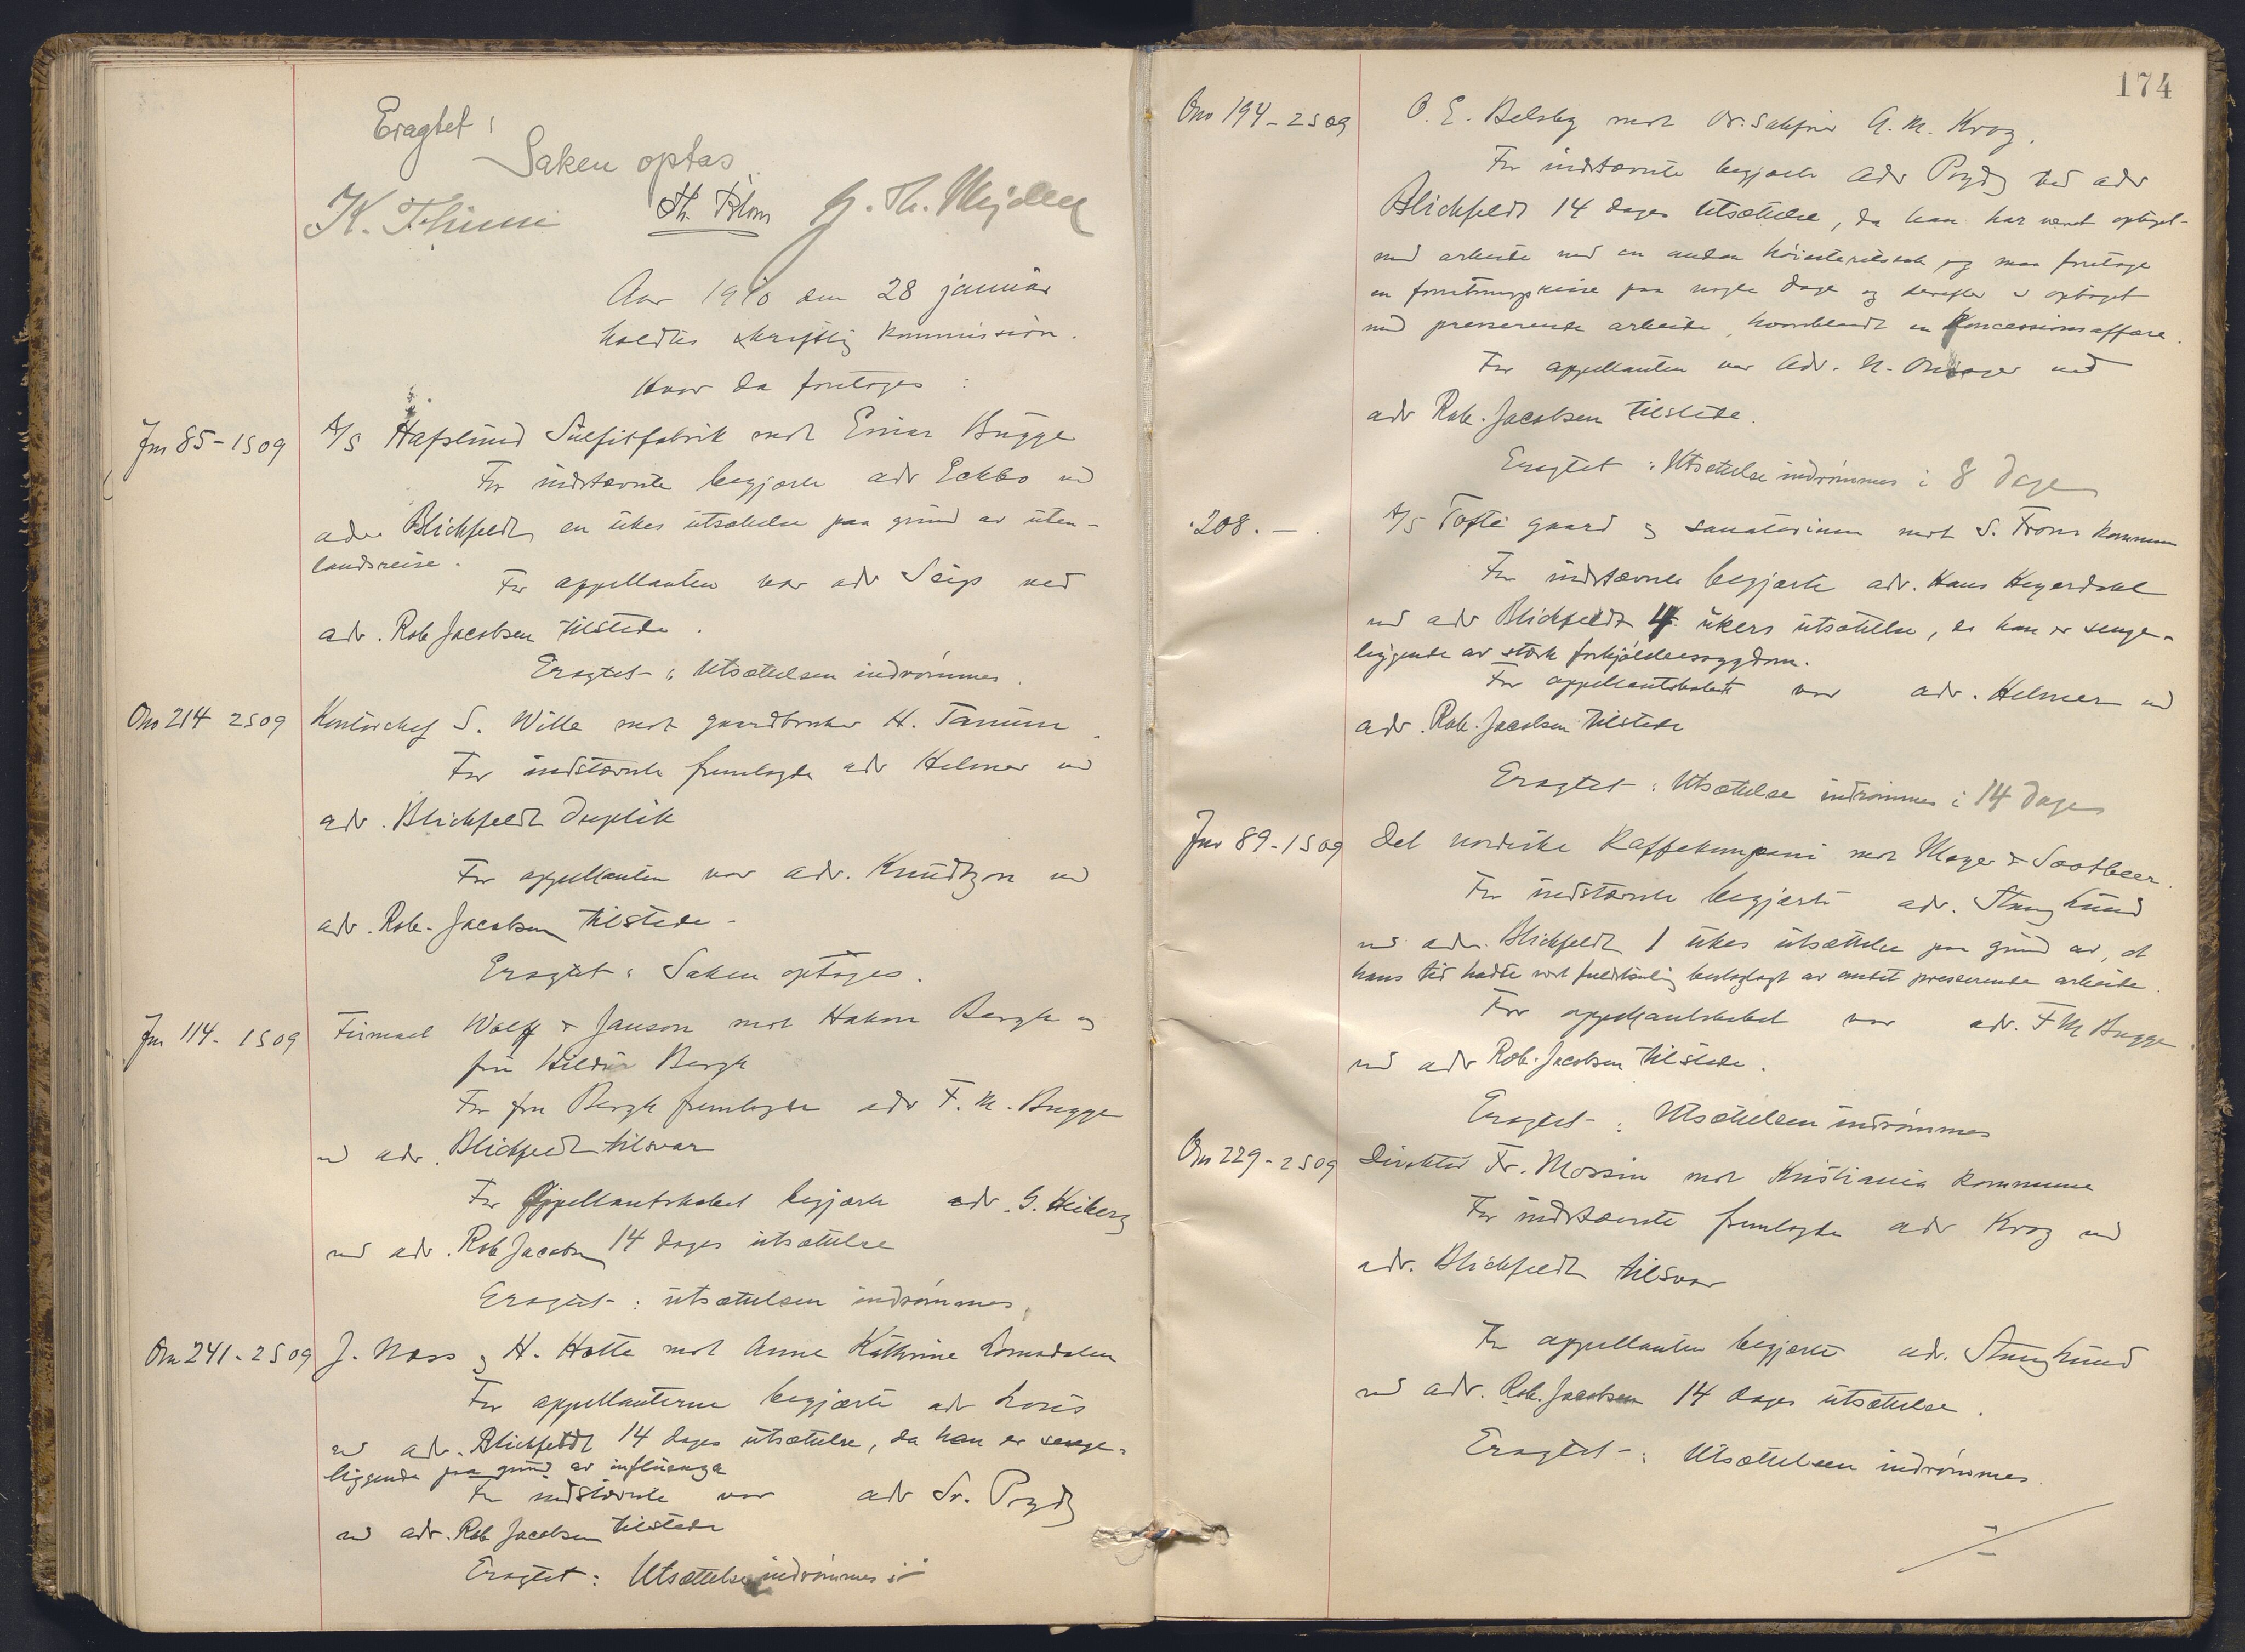 Eragtet:
Saken optas.
K. Thinn Th. Blom
Aar 1910 den 28 januar
holdtes skriftlig kommission.
Hvor da foretoges:
Jm 85-1S09 A/S Hafslund Sulfitfabrik mot Einar Bugge
For indstævnte begjærte adv Eckbo ved
adv Blichfeldt en ukes utsættelse paa grund av uten-
landsreise.
For appellanten var adv Seip ved
adv. Rob Jacobsen tilstede.
Eragtet: Utsættelsen indrømmes.
Om 214 2S09 Kontorchef S. Wille mot gaardbruker H. Tanum.
For indstævnte fremlagde adv Helmer ved
adv. Blichfeldt duplik
For appellanten var adv. Knudtzon ved
adv. Rob. Jacobsen tilstede-
Eragtet: Saken optages.
Jm 114-1S09 Firmaet Wolff & Janson mot Hakon Bergh og
fru Hildur Bergh
For fru Bergh fremlagde adv F. M. Bugge
ved adv. Blichfeldt tilsvar
For Appellantskabet begjærte adv. G. Heiberg
ved adv. Rob Jacobsen 14 dages utsættelse
Eragtet: utsættelsen indrømmes.
Om 241-2S09 J. Næss og H. Hatte mot Anne Kathrine
For appellanterne begjærte adv
ved adv. Blichfeldt 14 dages utsættelse, da han er senge-
liggende paa grund av influenza
For indstævnte var adv Sv. Prydz
ved adv. Rob Jacobsen tilstede
Eragtet: Utsættelse indrømmes
174
Om 194-2S09 O. E. Belsby mot Or.sakfører A. M. Krog.
For indstævnte begjærte Adv Prydz ved adv
Blichfeldt 14 dages utsættelse, da han har været optaget
med arbeide med en anden høiesteretssak og maa foretage
en forretningsreise paa nogle dage og derefter er optaget
med presserende arbeide, hvoriblandt en Koncessionsaffære.
For appellanten var Adv. N. Onsager ved
adv Rob. Jacobsen tilstede.
Eragtet: Utsættelse indrømmes i 8 dage
208. - A/S Tofte gaard og sanatorium mot S. Frons kommune
For indstævnte begjærte adv. Hans Heyerdahl
ved adv Blichfeldt 4 ukers utsættelse, da han er senge-
liggende av stærk forkjølelsessygdom.
For appellantskabet var adv. Helmer ved
adv. Rob. Jacobsen tilstede
Eragtet: Utsættelse indrømmes i 14 dage
Jm 89-1S09 Det nordiske Kaffekompani mot Mayer & Sootbeer.
For indstævnte begjærte adv. Stang Lund
ved adv. Blichfeldt 1 ukes utsættelse paa grund av, at
hans tid hadde vært fuldstændig beslaglagt av andet presserende arbeide.
For appellantskabet var adv. F M Bugge
ved adv Rob. Jacobsen tilstede.
Eragtet: Utsættelsen indrømmes
Om 229-2S09 Direktør Fr. Mossin mot Kristiania kommune
For indstævnte fremlagde adv Krog ved
adv. Blichfeldt tilsvar
For appellanten begjærte adv. Stang Lund
ved adv. Rob. Jacobsen 14 dages utsættelse.
Eragtet: Utsættelsen indrømmes.